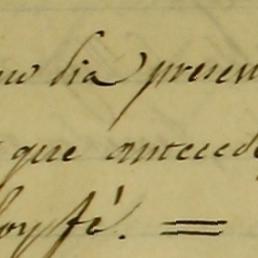 mo dia presen
que antecede
doy fé. =